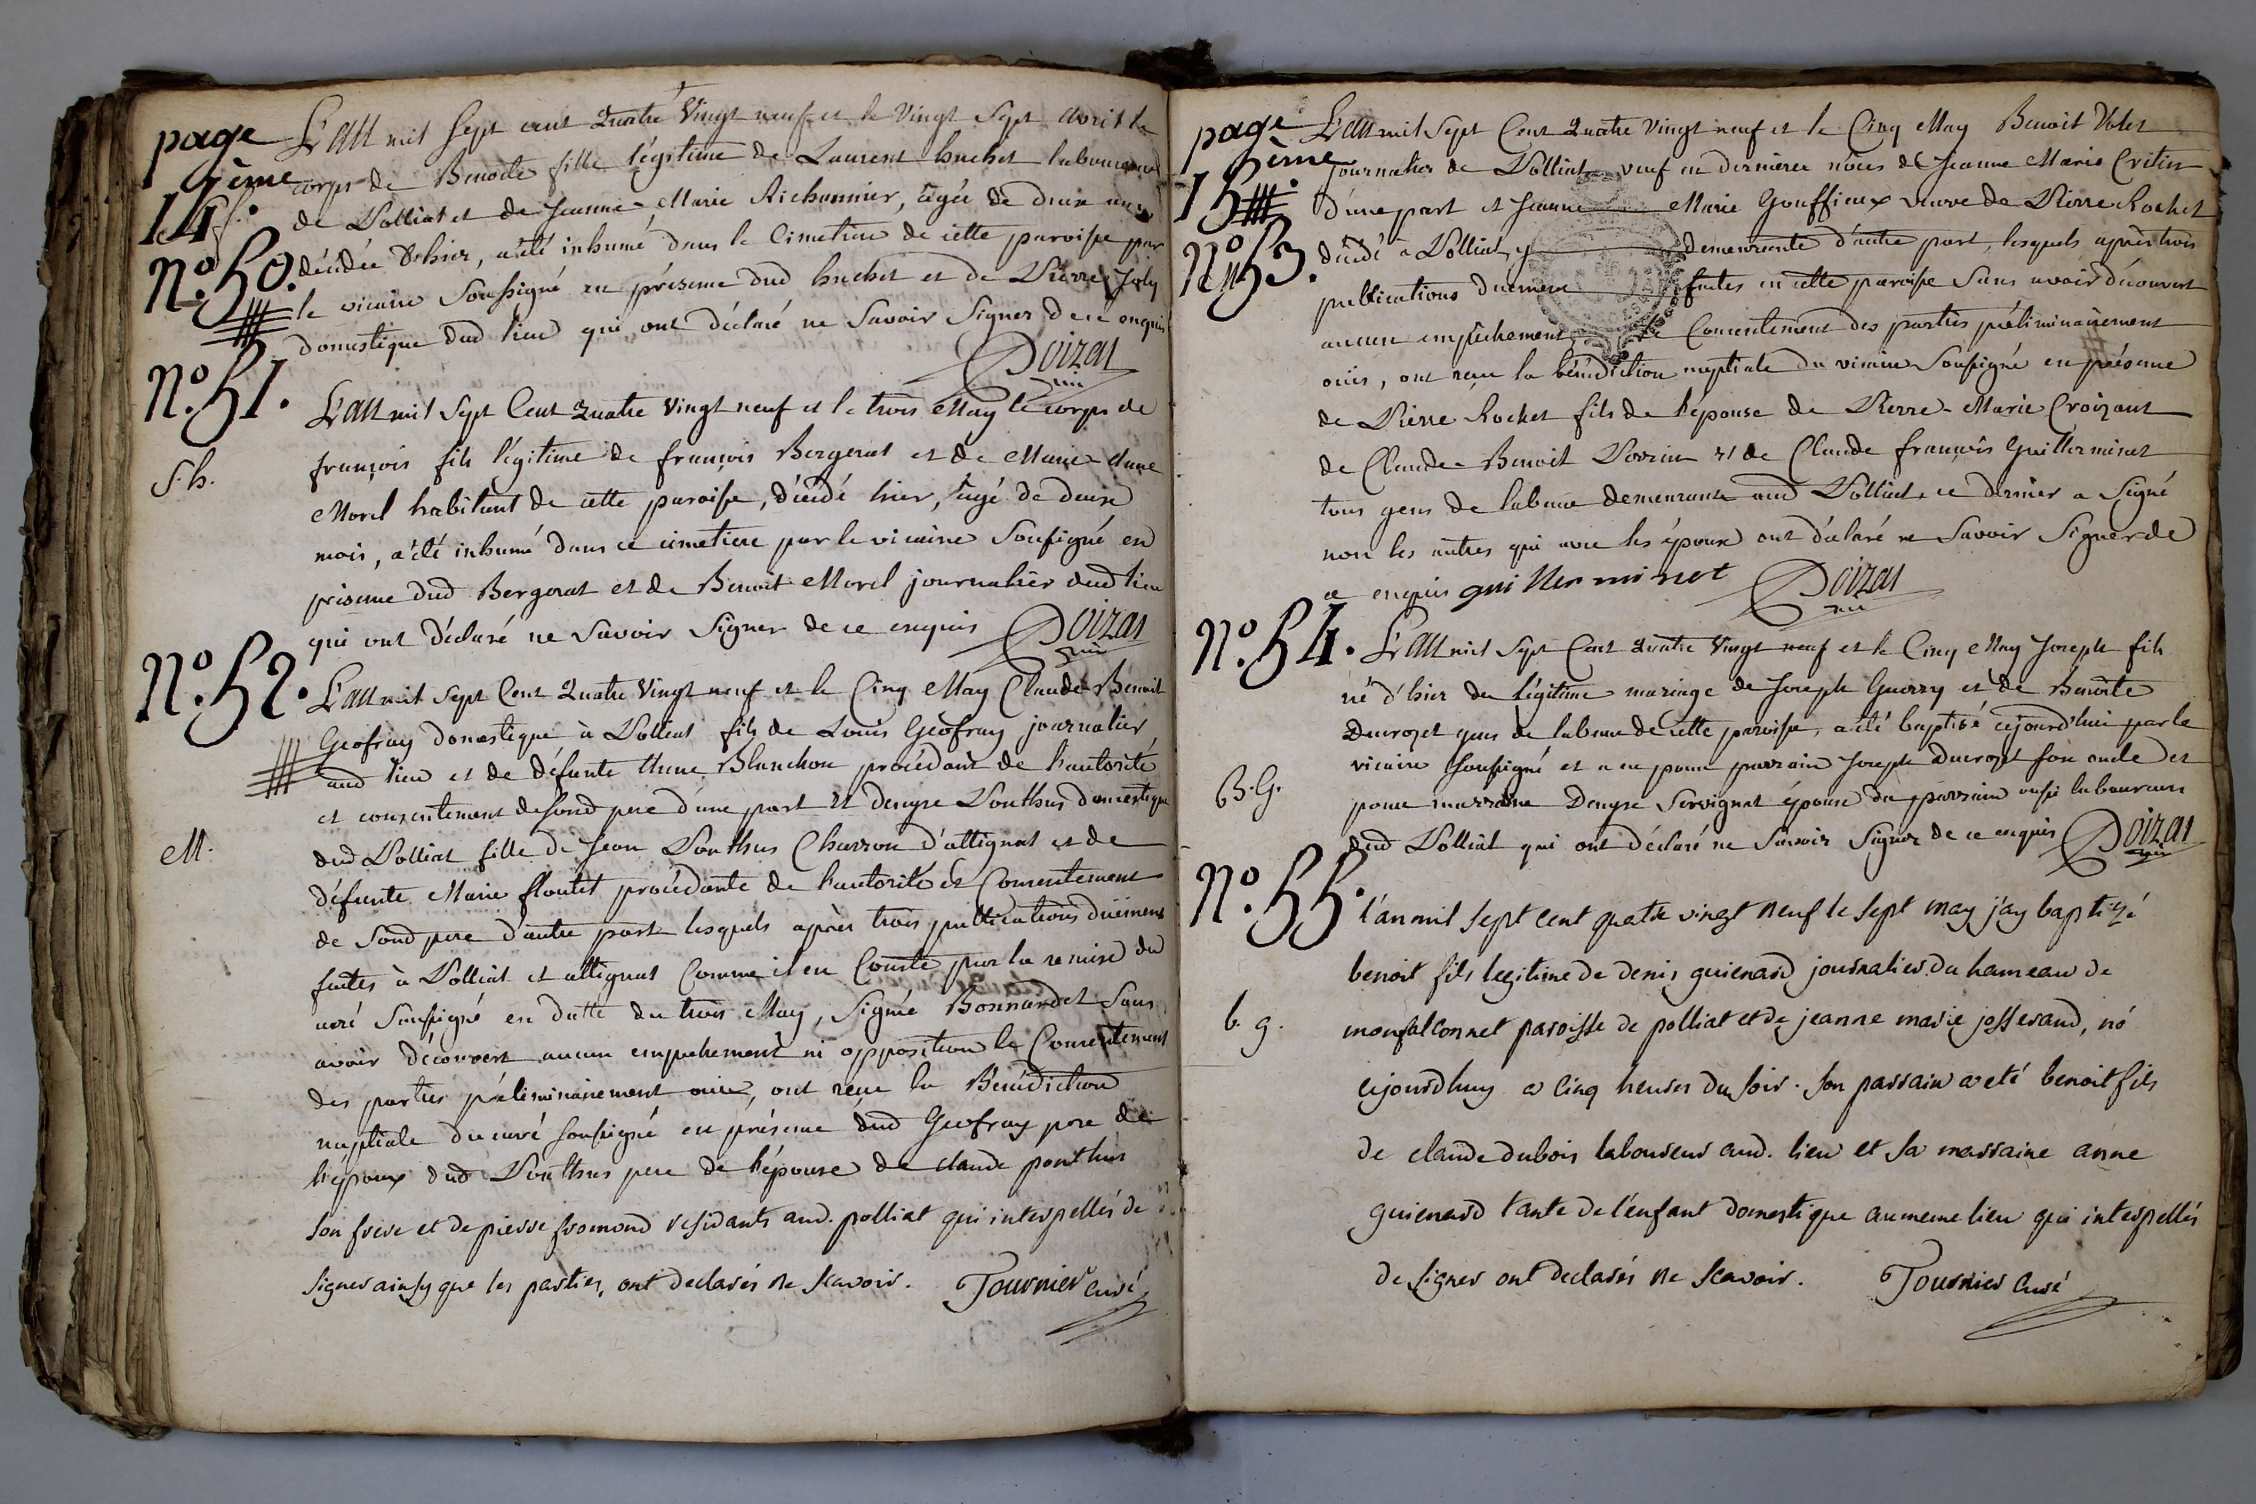 page
14ème
L'an mil Sept cent Quatre Vingt neuf et le Vingt Sept avril le
corps de Benoite fille légitime de Laurent huchet laboureur
de Polliat et de Jeanne-Marie Richonnier, agée de deux ans
décédée d'hier, a été inhumé dans le Cimetiere de cette paroisse par
le vicaire Soussigné en présence dud huchet et de Pierre Joly
domestique dud lieu qui ont déclaré ne Savoir Signer de ce enquis
Doizat
vic
N.º 50.
N.º 51.
S.h.
L'an mil Sept Cent Quatre Vingt neuf et le trois May le corps de
françois fils légitime de françois Bergerat et de Marie-Anne
Morel habitant de cette paroisse, décédé hier, agé de deux
mois, a été inhumé dans ce cimetiere par le vicaire Soussigné en
présence dud Bergerat et de Benoit Morel journalier dud lieu
qui ont déclaré ne Savoir Signer de ce enquis Doizat
vic
N.º 52.
M.
L'an mil Sept Cent Quatre Vingt neuf et le Cinq May Claude-Benoit
Geofray domestique à Polliat fils de Louis Geofray journalier
aud lieu et de défunte Anne Blanchon procédant de l'autorité
et consentement de sond pere d'une part et denyse Ponthus domestique
dud Polliat fille de Jean Ponthus Charron d'attignat et de
défunte Marie floutet procédante de l'autorité et Consentement
de Sond pere d'autre part lesquels après trois publications duëment
faites à Polliat et attignat Comme il en Conste par la remise du
curé Soussigné en datte du trois May, Signée Bonnardet Sans
avoir découvert aucun empechement ni opposition le Consentement
des parties préliminairement ouies, ont reçu la Bénédiction
nuptiale du curé soussigné en présence dud Geofray pere de
l'epoux dud Ponthus pere de l'épouse de claude ponthus
son frere et de pierre fromond residants aud. polliat qui interpellés de
signer ainsy que les parties, ont declarés ne scavoir. Tournier curé
page
15ème
N.º 53.
M
L'an mil Sept Cent Quatre Vingt neuf et le Cinq May Benoit Volet
Journalier de Polliat veuf en dernieres noces de Jeanne Marie Critin
d'une part et Jeanne Marie Gouffieux veuve de Pierre Rochet
décédé à Polliat, y demeurante d'autre part, lesquels après trois
publications duement faites en cette paroisse Sans avoir découvert
aucun empêchement, le Consentement des parties préliminairement
ouies, ont reçu la bénédiction nuptiale du vicaire Soussigné en présence
de Pierre Rochet fils de l'épouse de Pierre-Marie Croizant
de Claude-Benoit Perrin et de Claude françois Guillerminet
tous gens de labeur demeurants aud Polliat, ce dernier a Signé
non les autres qui avec les époux ont déclaré ne Savoir Signer de
ce enquis guillerminet Doizat
vic
N.º 54.
B.G.
L'an mil Sept Cent Quatre Vingt neuf et le Cinq May Joseph fils
né d'hier du légitime mariage de Joseph Guerry et de Benoite
Ducrozet gens de labeur de cette paroisse, a été baptisé cejourd'hui par le
vicaire Soussigné et a eu pour parrain Joseph Ducrozet son oncle et
pour marraine Denyse Servignat épouse du parrain aussi laboureurs
dud Polliat qui ont déclaré ne Savoir Signer de ce enquis Doizat
vic
N.º 55.
b. g.
l'an mil sept cent quatre vingt neuf le sept may j'ay baptizé
benoit fils legitime de denis guienard journalier du hameau de
monfalconnet paroisse de polliat et de jeanne marie josserand, né
cejourdhuy a cinq heures du soir. son parrain a eté benoit fils
de claude dubois laboureur aud. lieu et sa marraine anne
guienard tante de l'enfant domestique au meme lieu qui interpellés
de signer ont declarés ne scavoir. Tournier curé